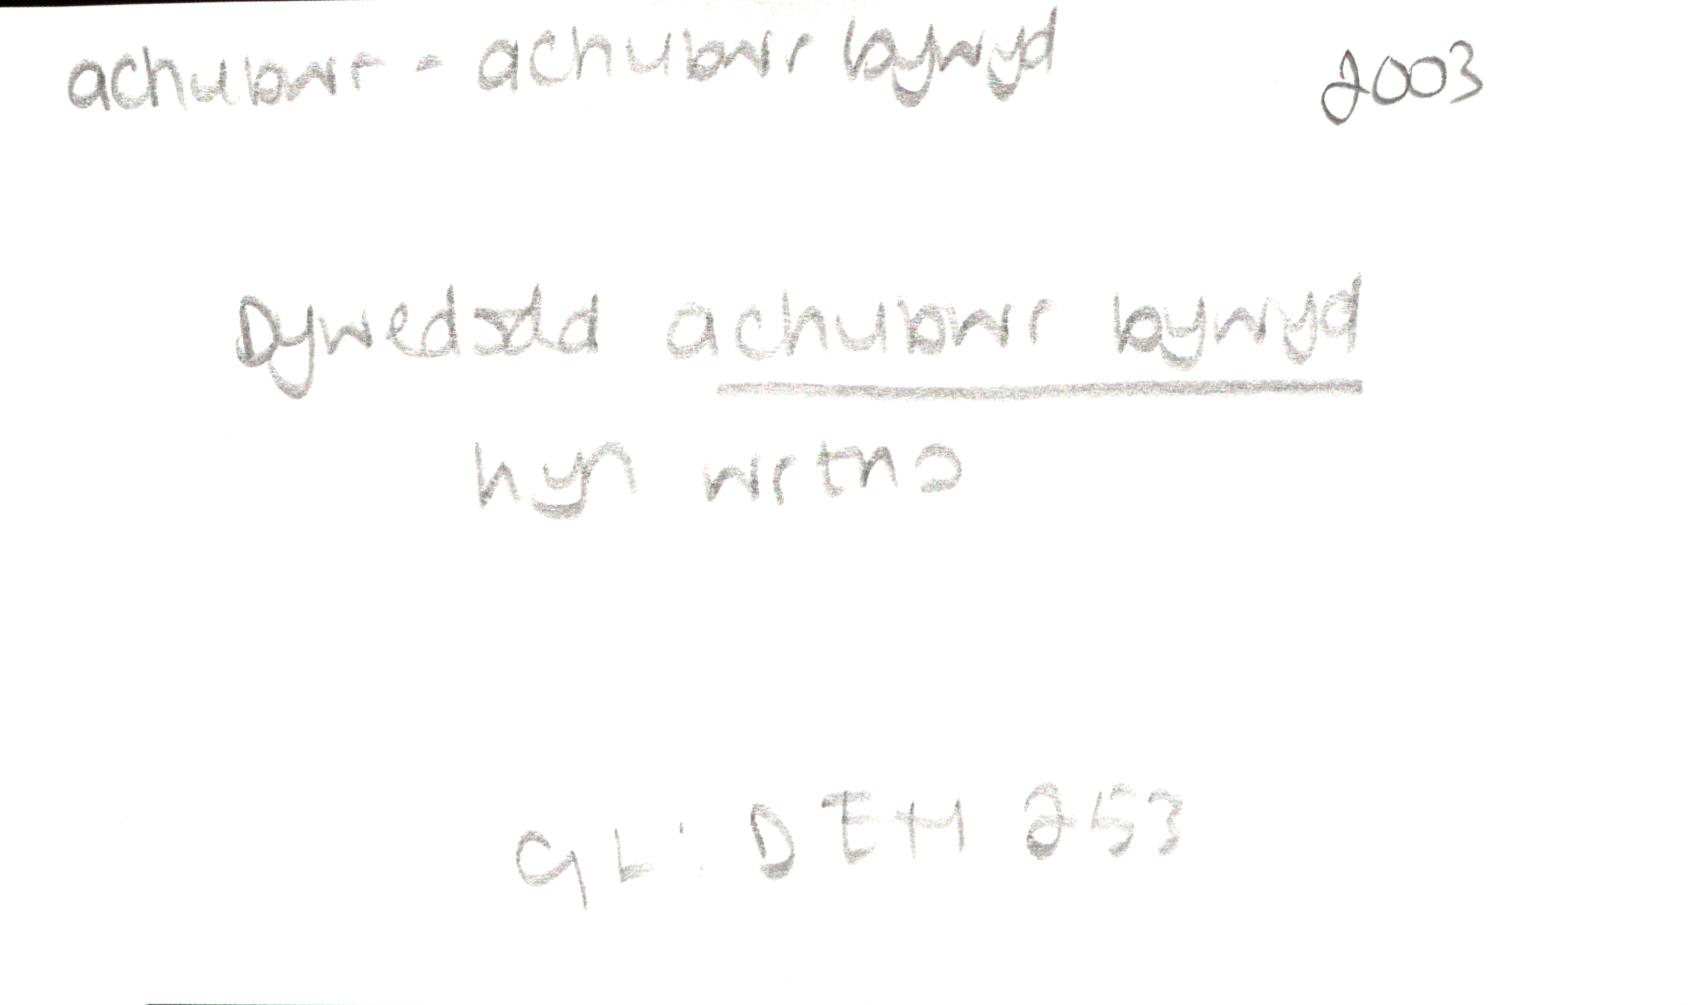 achubwr - achubwr bywyd 2003
Dywedodd achubwr bywyd
hyn wrtho
GL: DIH 253